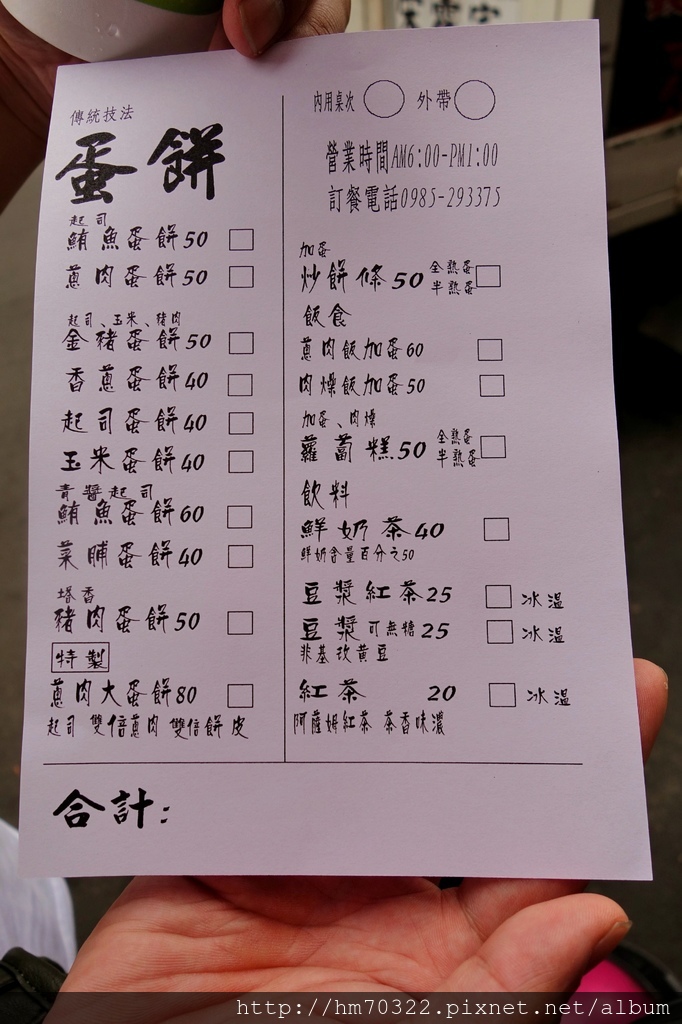 傳統技法
蛋餅
起司
鮪魚蛋餅50
蔥肉蛋餅50
起司、玉米、豬肉
金豬蛋餅50
香蔥蛋餅40
起司蛋餅40
玉米蛋餅40
青醬起司
鮪魚蛋餅60
菜脯蛋餅40
塔香
豬肉蛋餅50
特製
蔥肉大蛋餅80
起司 雙倍蔥肉 雙倍餅皮
內用桌次 外帶
營業時間AM6:00-PM1:00
訂餐電話0985-293375
加蛋
炒餅條50 全熟蛋
半熟蛋
飯食
蔥肉飯加蛋60
肉燥飯加蛋50
加蛋、肉燥
蘿蔔糕50 全熟蛋
半熟蛋
飲料
鮮奶茶40
鮮奶含量百分之50
豆漿紅茶25 冰 溫
豆漿可無糖25 冰 溫
非基改黃豆
紅茶 20 冰 溫
阿薩姆紅茶 茶香味濃
合計:
http://hm70322.pixnet.net/album